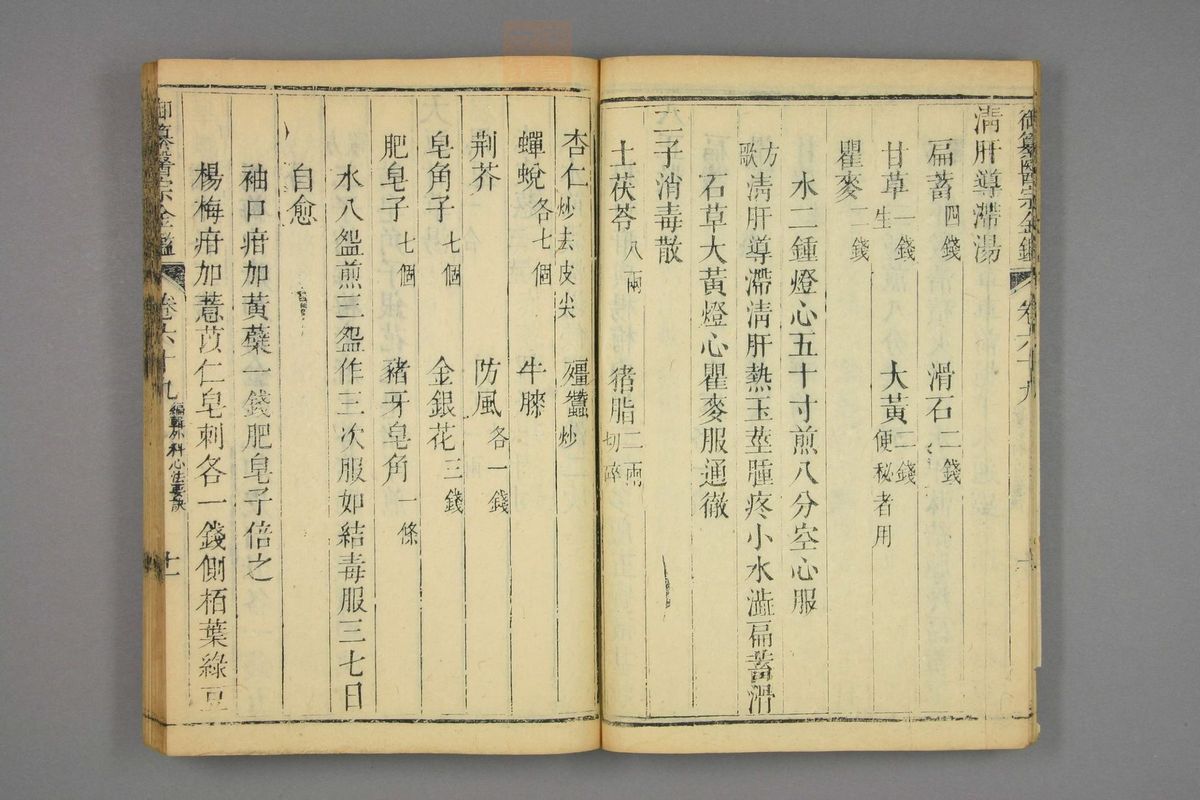 御纂醫宗金鑑 卷六十九
清肝導滯湯
扁蓄四錢 滑石二錢
甘草生一錢 大黃二錢便秘者用
瞿麥二錢
水二鍾燈心五十寸煎八分空心服
方歌 清肝導滯清肝熱玉莖腫疼小水澁扁蓄滑
石草大黃燈心瞿麥服通徹
二子消毒散
土茯苓八兩 猪脂二兩切碎
杏仁炒去皮尖 殭蠶炒
蟬蛻各七個 牛膝
荆芥 防風各一錢
皂角子七個 金銀花三錢
肥皂子七個 豬牙皂角一條
水八盌煎三盌作三次服如結毒服三七日
自愈
袖口疳加黃蘗一錢肥皂子倍之
楊梅疳加薏苡仁皂刺各一錢側栢葉綠豆
御纂醫宗金鑑 卷六十九 編輯外科心法要訣 十一